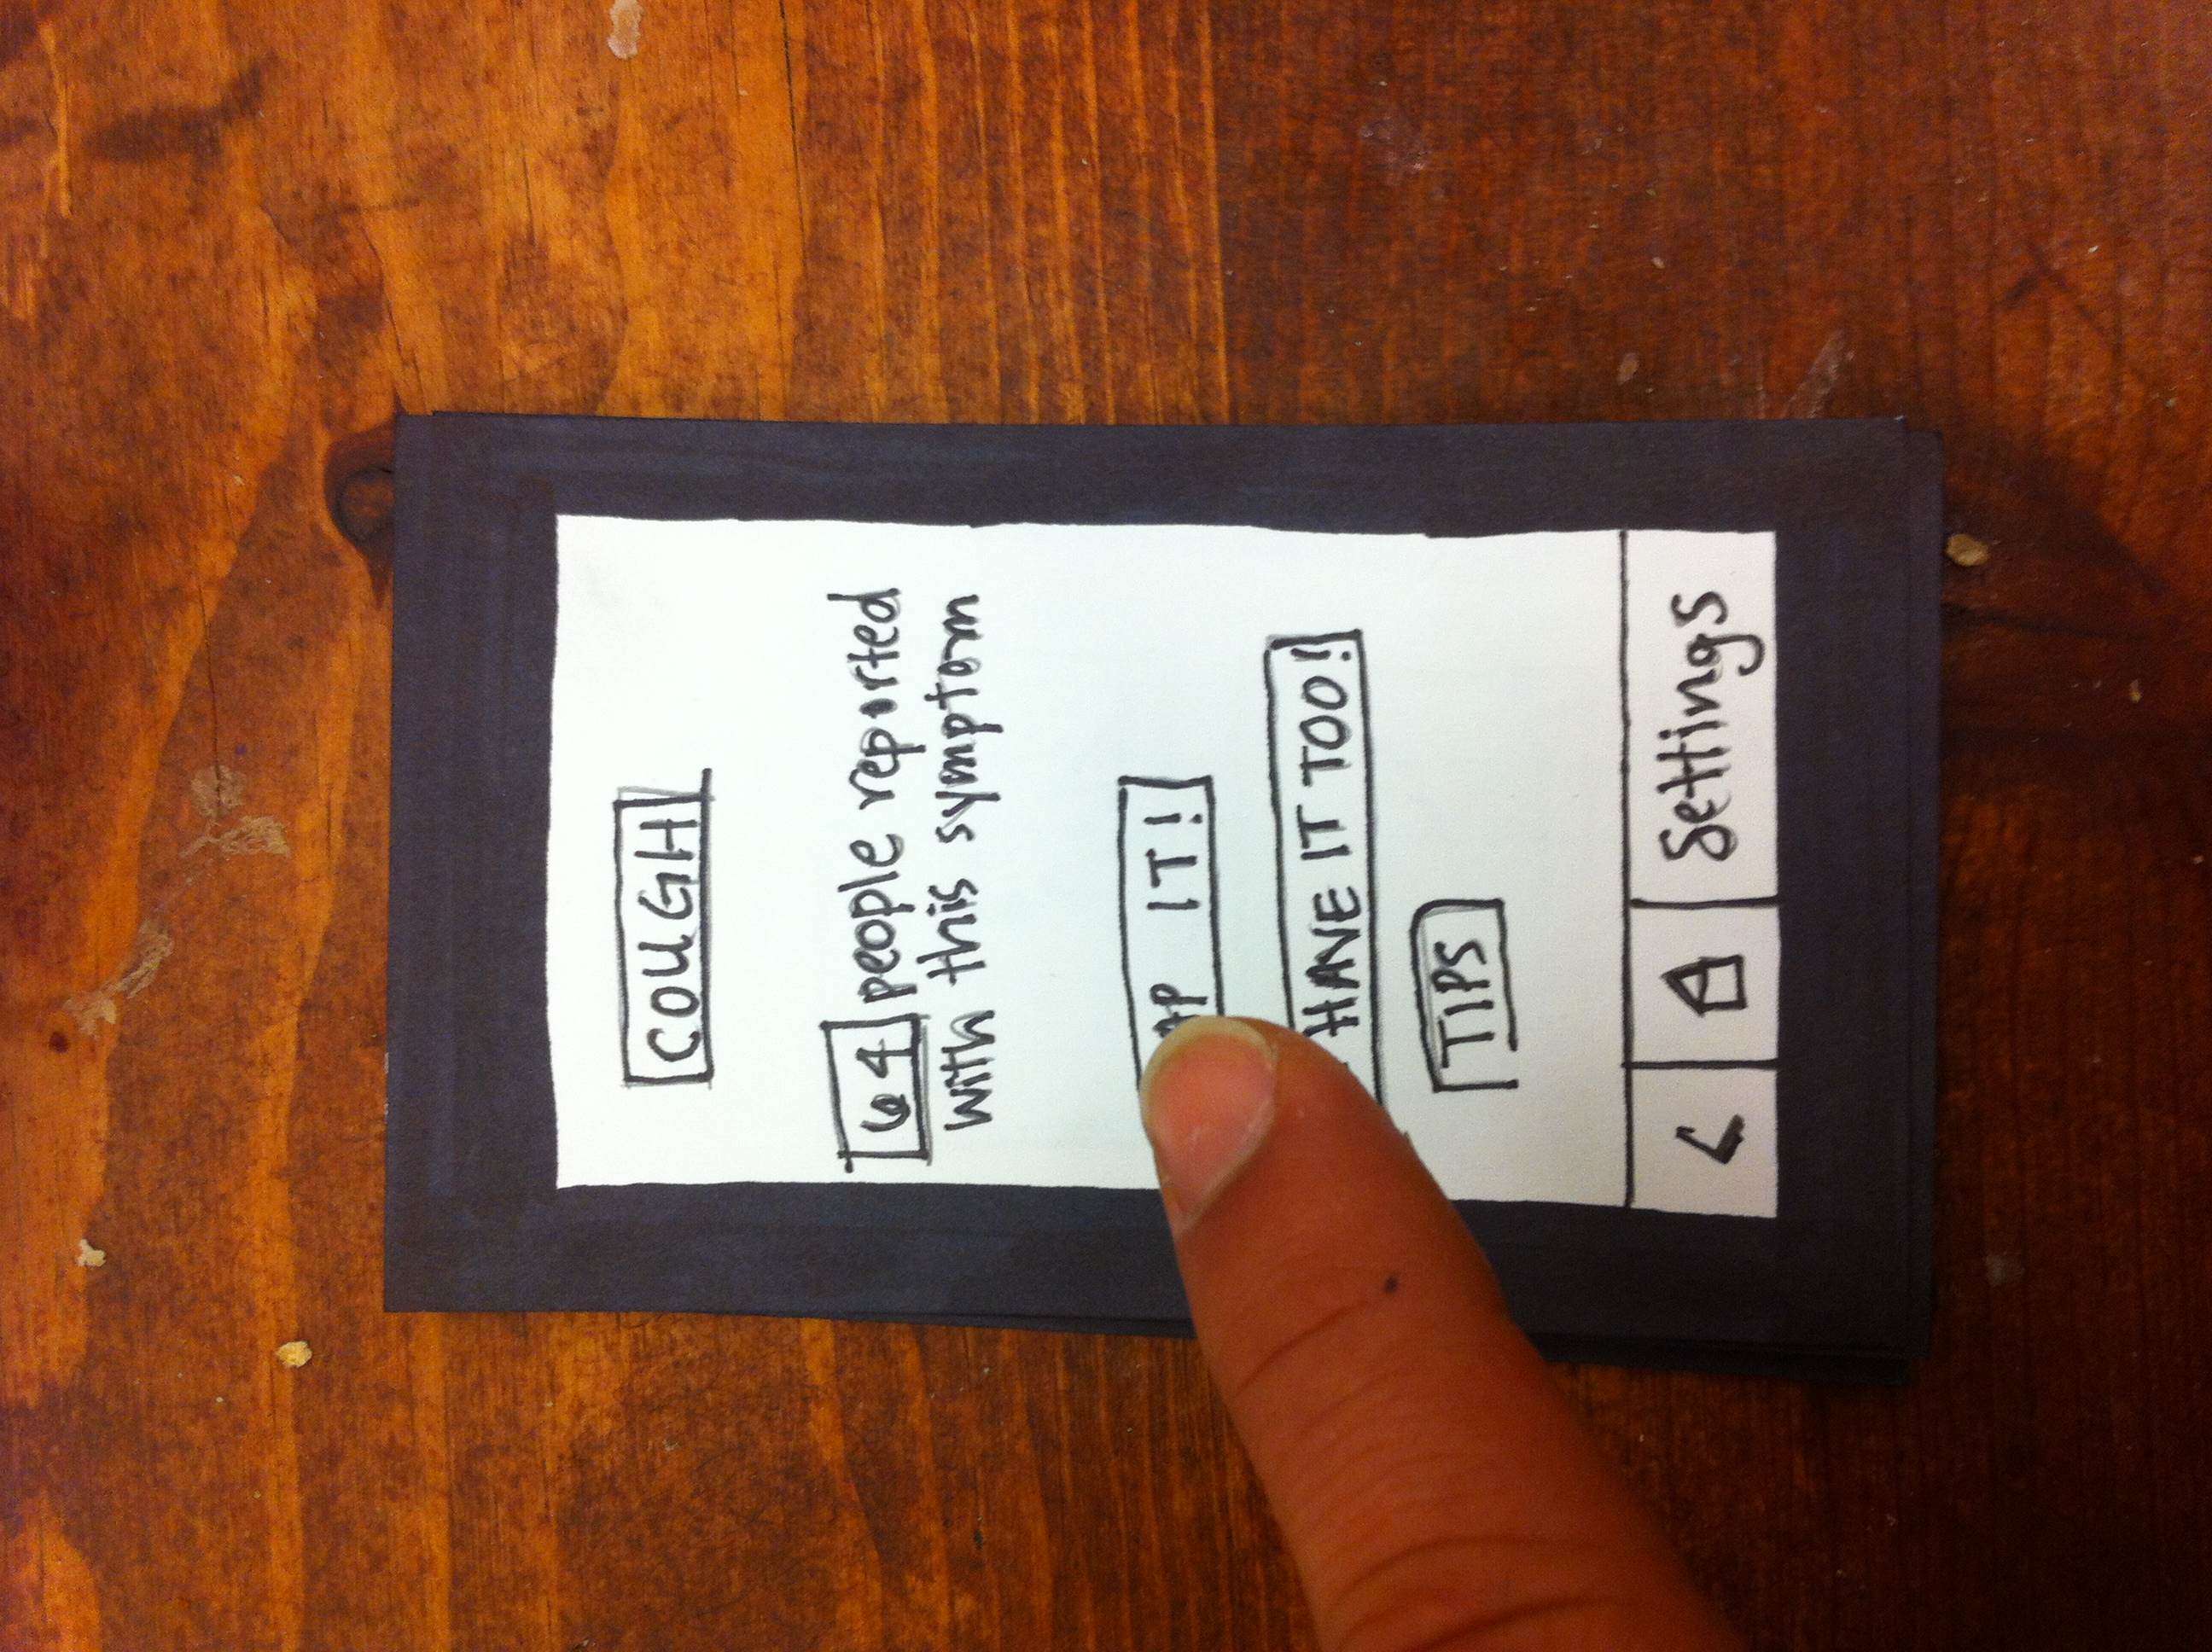 COUGH
64 people reported
with this symptom
IT!
HAVE IT TOO!
TIPS
< Settings